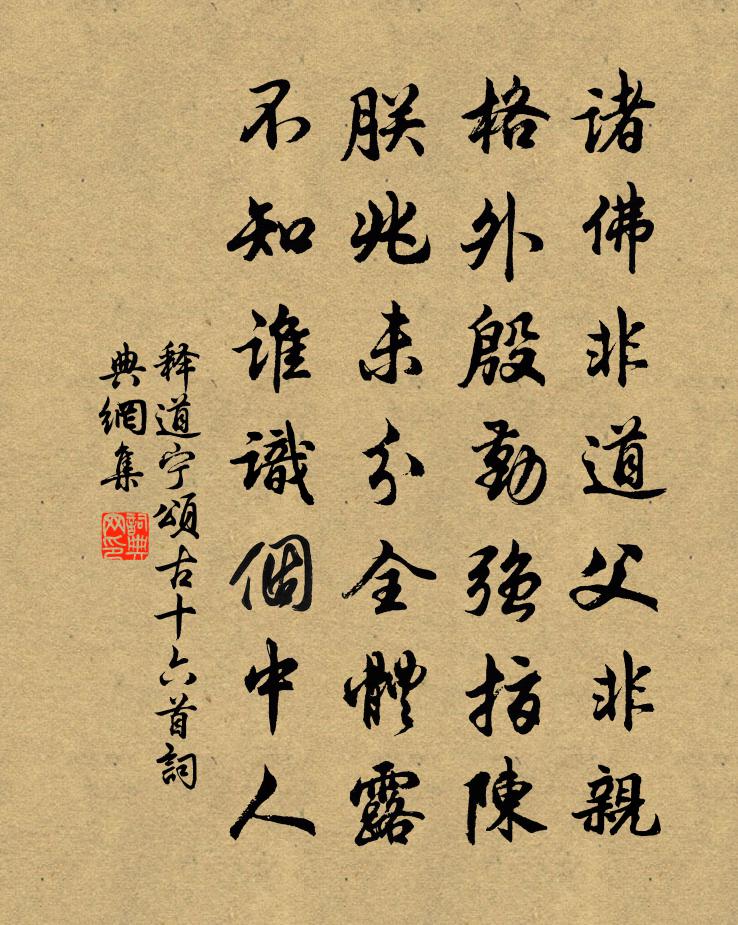 諸佛非道父非親
格外殷勤強指陳
朕兆未分全體露
不知誰識個中人
释道宁頌古十六首詞
典網集
詞典网印